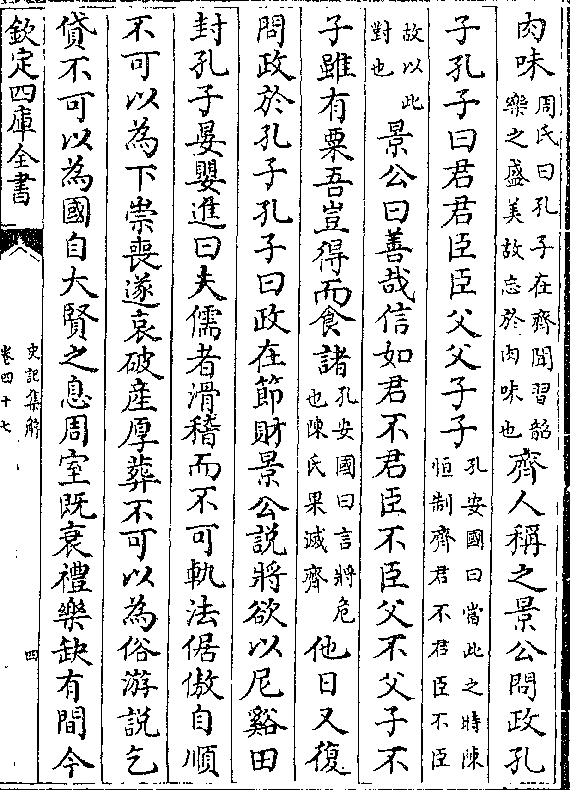 肉味周氏曰孔子在齊聞習韶樂之盛美故忘於肉味也齊人稱之景公問政孔
子孔子曰君君臣臣父父子子孔安國曰當此之時陳恒制齊君不君臣不臣
故以此對也景公曰善哉信如君不君臣不臣父不父子不
子雖有粟吾豈得而食諸孔安國曰言將危也陳氏果滅齊他日又復
問政於孔子孔子曰政在節財景公說將欲以尼谿田
封孔子晏嬰進曰夫儒者滑稽而不可軌法倨傲自順
不可以為下崇喪遂哀破産厚葬不可以為俗游說乞
貸不可以為國自大賢之息周室既衰禮樂缺有間今
欽定四庫全書
史記集解
卷四十七
四